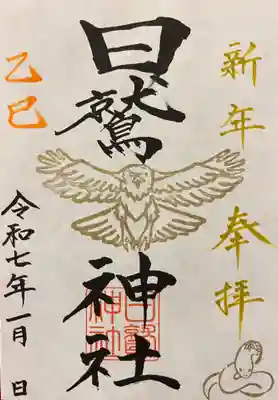 新年奉拝
日鷲神社
乙巳
令和七年一月 日
日鷲神社